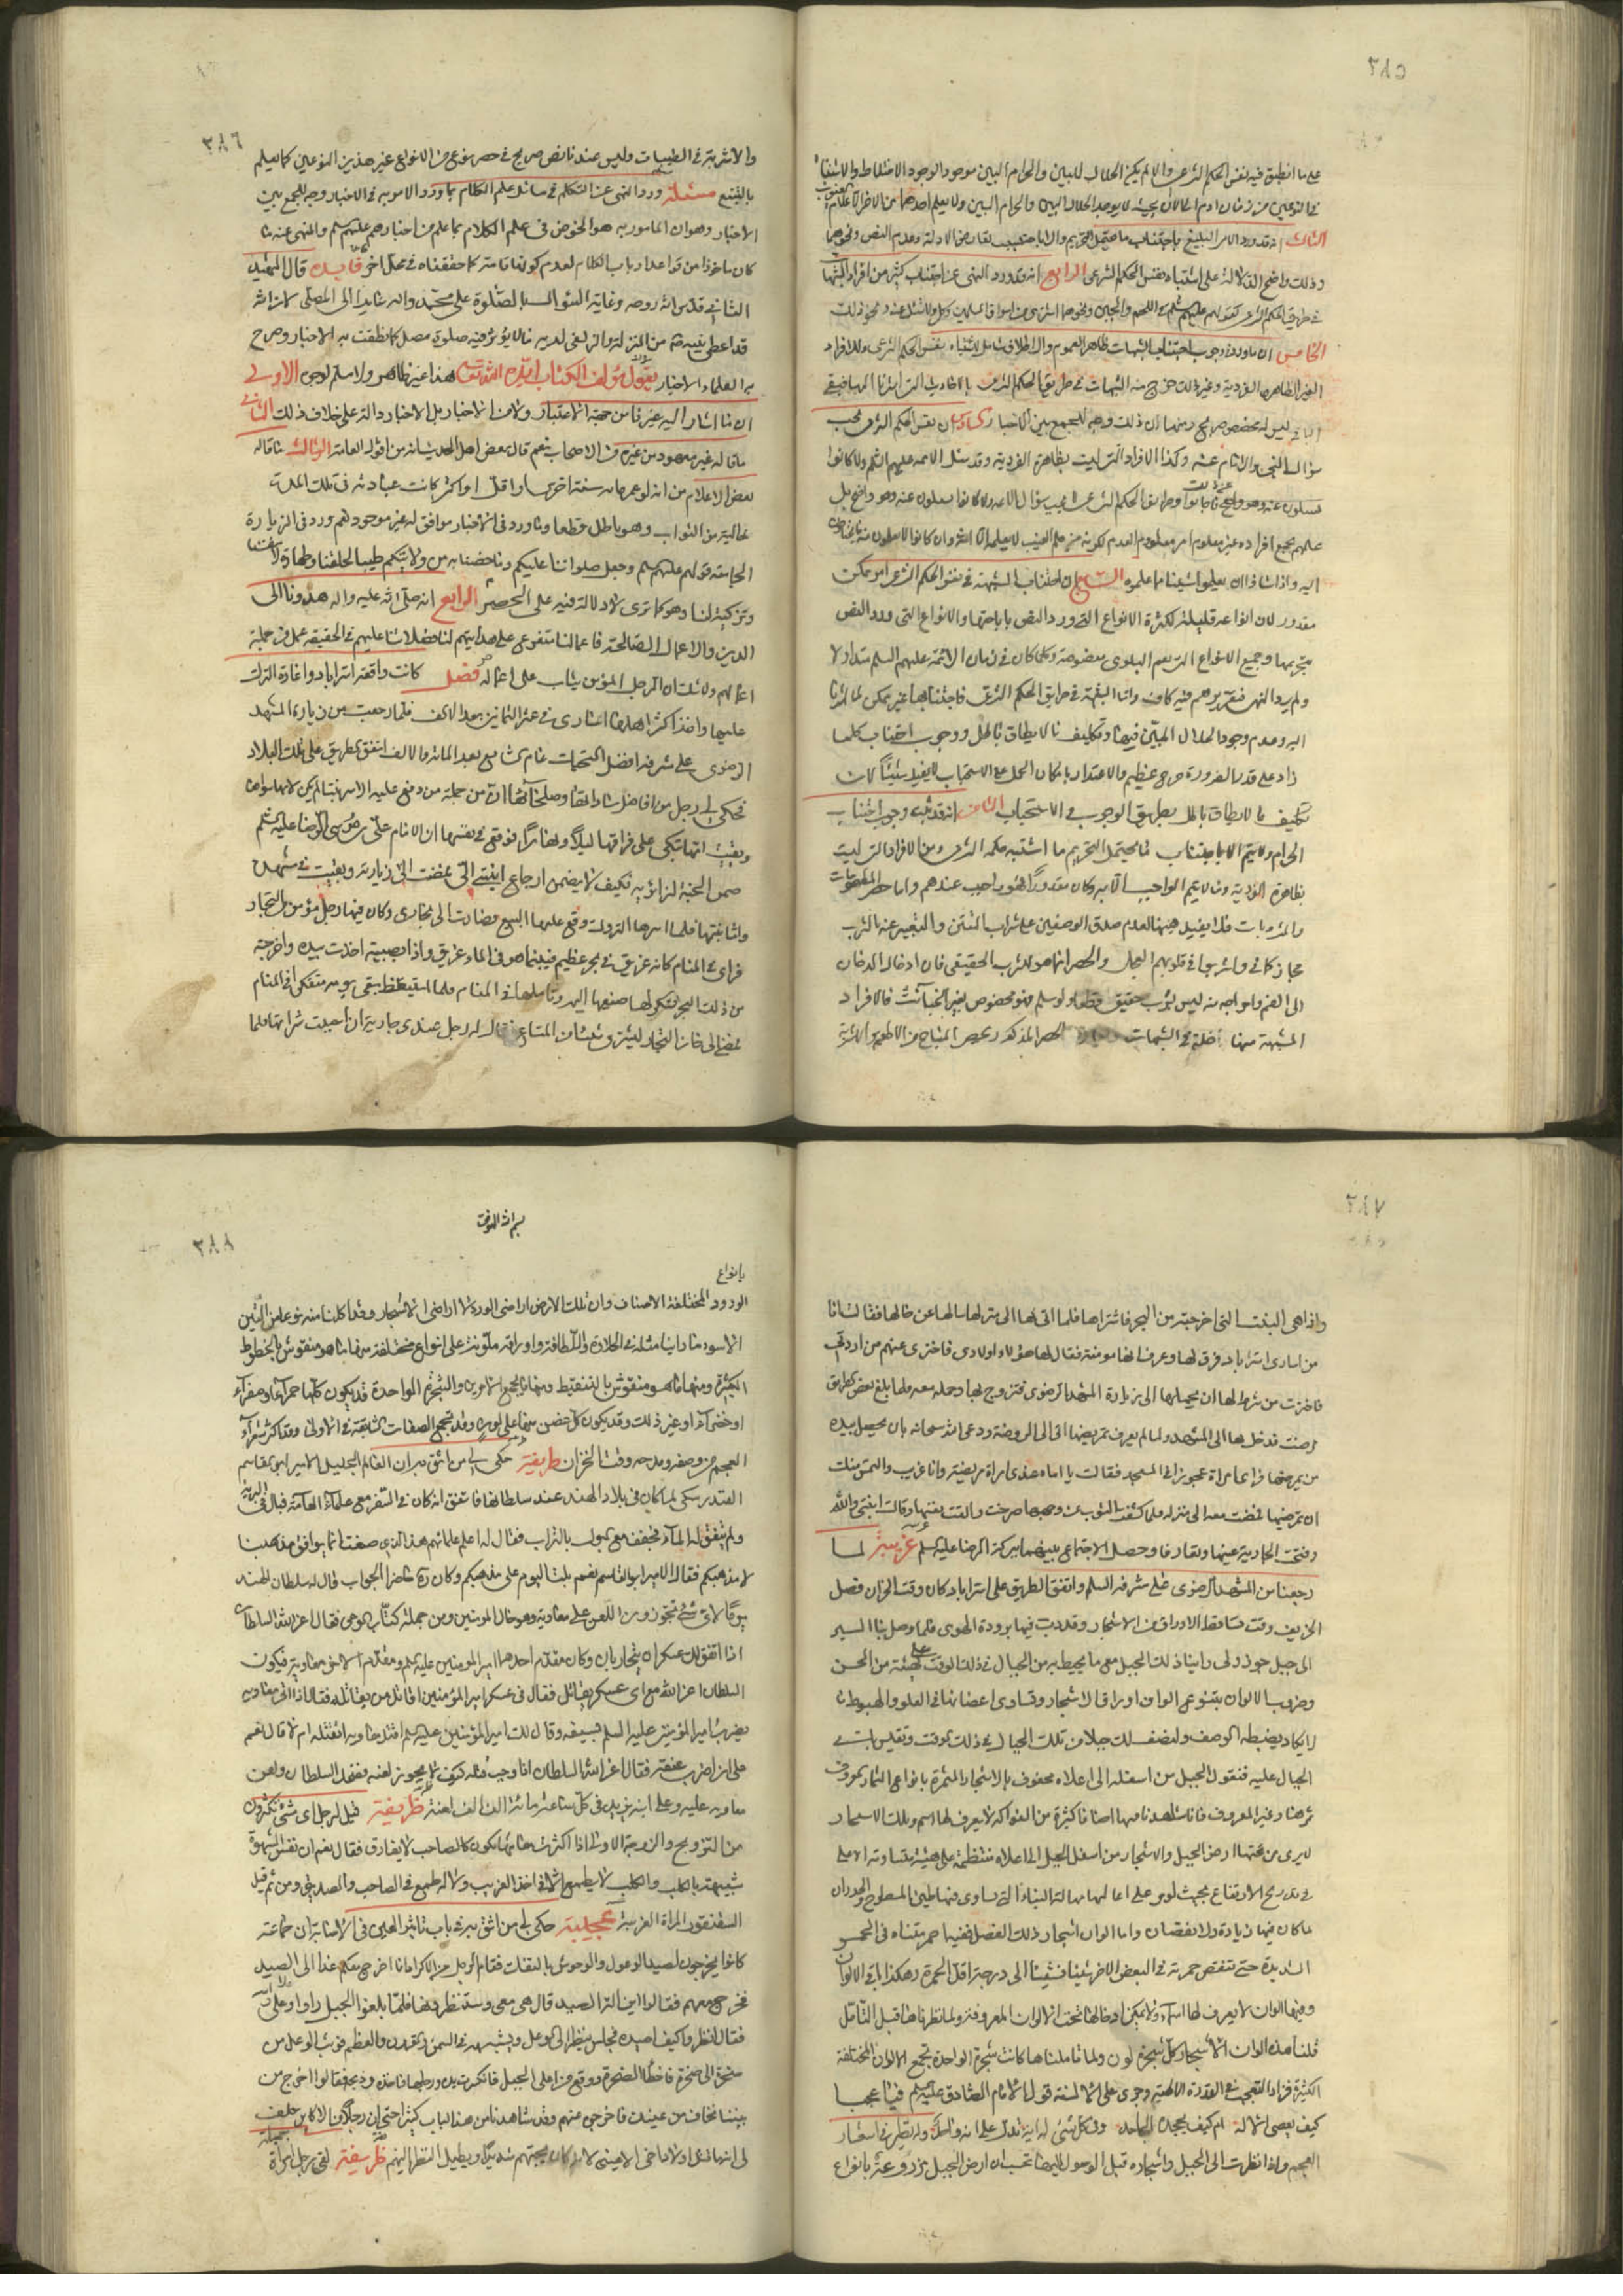 ٣٨٥
على ما انطبق فيه نفس الحكم الشرعى والا لم يكن الحلال البين والحرام البين موجودا لوجود الاختلاط والاشتباه
فى النوعين من زمان ادم الى الان بحيث لا يوجد الحلال البين والحرام البين ولا يعلم احدهما من الاخر الا علام الغيوب
الثالث انه قد ورد الامر البليغ باجتناب ما يحتمل التحريم والاباحة بسبب تعارض الادلة وعدم النص ونحوهما
وذلك واضح الدلالة على اشتباه نفس الحكم الشرعى الرابع انه قد ورد النهى عن اجتناب كثير من افراد الشبهات
فى طريق الحكم الشرعى كقولهم عليهم السلم فى اللحم والجبن ونحوهما اشترى من اسواق المسلمين وكل ولا تسئل عنه ونحو ذلك
الخامس ان ما ورد فى وجوب اجتناب الشبهات ظاهر العموم والاطلاق شامل لاشتباه نفس الحكم الشرعى وللافراد
الغير الظاهرة الفردية وغير ذلك خرج منه الشبهات فى طريق الحكم الشرعى بالاحاديث التى اشرنا اليها فيبقى
الباقى ليس له مخصص صريح ومنها ان ذلك وجه للجمع بين الاخبار السادس ان نفس الحكم الشرعى يجب
سؤال النبى والامام عنه وكذا الافراد التى ليست بظاهرة الفردية وقد سئل الائمة عليهم السلم ولا كانوا
يسئلون عنه وهو واضح فاجابوا وطريق الحكم الشرعى لا يجب سؤال الائمة ولا كانوا يسئلون عنه وهو واضح بل
علمهم بجميع افراده غير معلوم او معلوم العدم لكونه من علم الغيب لا يعلمه الا الله وان كانوا لا يعلمون منه ما يحتاجون
اليه واذا شاؤا ان يعلموا شيئا علموه السابع ان اجتناب الشبهة فى نفس الحكم الشرعى امر ممكن
مقدور لان انواعه قليلة لكثرة الانواع التى ورد النص باباحتها والانواع التى ورد النص
بتحريمها وجميع الانواع التى تعم البلوى بها منصوصة وكلما كان فى زمان الائمة عليهم السلم متداولا
ولم يرد النهى فتقريرهم فيه كاف واما الشبهة فى طريق الحكم الشرعى فاجتنابها غير ممكن لما اشرنا
اليه وعدم وجود الحلال البين فيها وتكليف ما لا يطاق باطل ووجوب اجتناب كلما
زاد على قدر الضرورة حرج عظيم والاعتذار بامكان الحمل على الاستحباب لا يفيد شيئا لان
تكليف ما لا يطاق باطل بطريق الوجوب فى الاستحباب الثامن انه قد ثبت وجوب اجتناب
الحرام ولا يتم الا باجتناب ما يحتمل التحريم ما اشتبه حكمه الشرعى ومن الافراد التى ليست
بظاهرة الفردية وما لا يتم الواجب الا به وكان مقدورا فهو واجب عندهم واما حصر المطعومات
والمشروبات فلا يفيد هيهنا لعدم صدق الوصفين على شراب التتن والتعبير عنه بالشرب
مجاز كما فى واشربوا فى قلوبهم العجل والحصر انما هو للشرب الحقيقى فان ادخال الدخان
الى الفم واخراجه منه ليس بشرب حقيقى قطعا ولو سلم فهو مخصوص بغير الخبائث فالافراد
المشتبهة منها داخلة فى الشبهات الحصر المذكور بحصر المباح من الاطعمة والاشربة
٣٨٦
والاشربة فى الطيبات وليس عندنا نص صريح فى حصر نوع من الانواع غير هذين النوعين كما يعلم
بالتتبع مسئلة ورد النهى عن التكلم فى مسائل علم الكلام وورد الامر به فى الاخبار وجه للجمع بين
الاخبار وهو ان المامور به هو الخوض فى علم الكلام بما علم من اخبارهم عليهم السلم والمنهى عنه ما
كان ماخوذا من قواعد ارباب الكلام لعدم كونها تامة كما حققناه فى محل اخر فايدة قال الشهيد
الثانى قدس الله روحه وغاية السؤال بالصلوة على محمد واله عائدا الى المصلى لان الله
قد اعطى نبيه من المنزلة والزلفى لديه ما لا يؤثر فيه صلوة مصل كما نطقت به الاخبار وصرح
به العلماء الاخيار يقول مؤلف الكتاب ايده الله تعالى هذا غير ظاهر ولا مسلم لوجوه الاول
ان ما اشار اليه غير تام من جهة الاعتبار ولا من الاخبار بل الاخبار دالة على خلاف ذلك الثانى
ما قاله غير معهود من غيره من الاصحاب نعم قال بعض اهل الحديث انه من اقوال العامة الثالث ما قاله
بعض الاعلام من انه لو عمر مائة سنة اخرى او اقل او اكثر كانت عبادته فى تلك المدة
خالية من الثواب وهو باطل قطعا وما ورد فى الاخبار موافق له غير موجود نعم ورد فى الزيارة
الجامعة قولهم عليهم السلم وجعل صلواتنا عليكم وما خصنا به من ولايتكم طيبا لخلقنا وطهارة لانفسنا
وتزكية لنا وهو كما ترى لا دلالة فيه على الحصر الرابع انه صلى الله عليه واله هدونا الى
الدين والاعمال الصالحة فاعمالنا متفرعة على هدايتهم لنا فصلاتنا عليهم فى الحقيقة عمل من جملة
اعمالهم ولا شك ان الرجل المؤمن يثاب على اعماله فصل كانت واقعة استراباد واغارة الترك
عليها واخذ اكثر اهلها اسارى فى عشر الثمانين بعد الالف فلما رجعت من زيارة المشهد
الرضوى على مشرفه افضل التحيات عام السابع بعد المائة والالف اتفق الطريق على تلك البلاد
فحكى لى رجل من افاضل ساداتها وصلحائها ان من جملة من وقع عليه الاسر بنتا لم يكن لامها سواها
وبقيت امها تبكى على فراقها ليلا ونهارا فوقع فى نفسها ان الامام على بن موسى الرضا عليه السلم
ضمن الجنة لزائريه فكيف لا يضمن ارجاع ابنتى الى فمضت الى زيارته وبقيت فى مشهده
واما بنتها فلما اسرها الترك وقع عليها البيع فصارت الى بخارى وكان فيها رجل مؤمن من التجار
فراى فى المنام كانه غريق فى بحر عظيم فبينما هو فى الماء غريق واذا بصبية اخذت بيده واخرجته
من ذلك البحر فشكر لها صنعها اليه وتاملها فى المنام فلما استيقظ بقى يومه متفكرا فى المنام
فمضى الى خان التجار ليشترى شيئا من المتاع فقال له رجل عندى جارية ان احببت شرائها فلما
٣٨٧
واذا هى البنت التى اخرجته من البحر فاشتراها فلما اتى بها الى منزله سالها عن حالها فقالت انا
من اسارى استراباد فرق لها وعرف انها مومنة فقال لها هؤلاء اولادى فاختارى منهم من اردتى
فاختارت من شرط لها ان يحملها الى زيارة المشهد الرضوى فتزوج بها وحملها معه فلما بلغ بعض الطريق
مرضت فدخل بها الى المشهد ولما لم يعرف تمريضها اتى الى الروضة ودعى الله سبحانه بان يحصل بيده
من يمرضها فراى امراة عجوزا فى المسجد فقالت يا اماه عندى امراة مريضة وانا غريب والتمس منك
ان تمرضيها فمضت معه الى منزله فلما كشفت الثوب عن وجهها صرخت والقت نفسها وقالت ابنتى والله
وفتحت الجارية عينها وتعارفا وحصل الاجتماع بينهما ببركة الرضا عليه السلم غريبة لما
رجعنا من المشهد الرضوى على مشرفه السلم واتفق الطريق على استراباد كان وقت الخزان فصل
الخريف وقت تساقط الاوراق من الاشجار وقد دبت فيها برودة الهوى فلما وصل بنا السير
الى جبل جوزولى راينا ذلك الجبل مع ما يحيط به من الجبال فى ذلك الوقت على هيئة من الحسن
وضروب الالوان بتنوع الوان اوراق الاشجار وتساوى اغصانها فى العلو والهبوط ما
لا يكاد يضبطه الوصف ولنصف لك جبلا من تلك الجبال فى ذلك الوقت وتقيس باقى
الجبال عليه فنقول الجبل من اسفله الى اعلاه محفوف بالاشجار المثمرة بانواع الثمار المعروف
ثمرها وغير المعروف فانا شاهدنا منها اصنافا كثيرة من الفواكه لا يعرف لها اسم وتلك الاشجار
ليرى من تحتها ارض الجبل والاشجار من اسفل الجبل الى اعلاه منتظمة على هيئة متساوية الاعلى
فى تدريج الارتفاع بحيث لو مر على اعاليها مهالة البناء التى تساوى فيها طين السطوح والجدران
ما كان فيها زيادة ولا نقصان واما الوان اشجار ذلك الفصل ففيها حمر متناه فى الحمرة
الشديدة حتى تنتقص حمرته فى البعض الاخر شيئا فشيئا الى درجة اقل الحمرة وهكذا باقى الالوان
وفيها الوان لا يعرف لها اسماء ولا يمكن ادخالها تحت الالوان المعروفة ولما نظرناها قبل التامل
قلنا هذه الوان الاشجار كل شجرة لون ولما تاملناها كانت شجرة الواحدة تجمع الالوان المختلفة
الكثيرة فزاد التعجب فى القدرة الالهية وجرى على الالسنة قول الامام الصادق عليه السلم فيا عجبا
كيف يعصى الاله ام كيف يجحده الجاحد وفى كل شئ له اية تدل على انه واحد وله نظر فى اسفار
العجم واذا نظرت الى الجبل واشجاره قبل الوصول اليها تحسب ان ارض الجبل مزروعة بانواع
٣٨٨
بسم الله الموفق
بانواع
الورود المختلفة الاصناف وان تلك الارض اراضى الورد لا اراضى الاشجار وقد اكلنا منه نوعا من التين
الاسود ما راينا مثله فى الحلاوة واللطافة واوراقه ملونة على انواع مختلفة منها ما هو منقوش بالخطوط
الكثيرة ومنها ما هو منقوش بالتنقيط ومنها ما يجمع الامرين والشجرة الواحدة قد يكون كلها حمراء او صفراء
او خضراء او غير ذلك وقد يكون كل غصن منها على لون وقد تجمع الصفات السابقة فى الاولى وقد اكثر شعراء
العجم من وصفه ومدحه وقت الخزان طريفة حكى لى من اثق به ان العالم الجليل الامير ابو القاسم
الفندرسكى لما كان فى بلاد الهند عند سلطانها فاتفق انه كان فى السفر مع علماء العامة فبال فى البرية
ولم يتفق له الماء فجفف مع البول بالتراب فقال له اعلم علمائهم هذا الذى صنعت انما يوافق مذهبنا
لا مذهبكم فقال الامير ابو القاسم نعم بلت اليوم على مذهبكم وكان حاضر الجواب قال له سلطان الهند
يوما لاى شئ تجوزون اللعن على معاوية وهو خال المومنين ومن جملة كتاب الوحى فقال اعز الله السلطان
اذا اتفق لك عسكران يتحاربان وكان مقدم احدهما امير المومنين عليه السلم ومقدم الاخر معاوية فيكون
السلطان اعز الله مع اى عسكر يقاتل فقال فى عسكر امير المؤمنين اقاتل من يقاتله فقال اذا اتى معاوية
يضرب امير المؤمنين عليه السلم بسيفه وقال لك امير المؤمنين عليه السلم اقتل معاوية اتقتله ام لا قال نعم
على ان اضرب عنقه فقال اعز الله السلطان اذا وجب قتله فكيف لا يجوز لعنه فضحك السلطان ولعن
معاوية عليه وعلى ابنه يزيد فى كل ساعة مائة الف الف لعنة ظريفة قيل لرجل اى شئ تكثرون
من التزويج والزوجة الاولى اذا اكثرت معاشرتها تكون كالصاحب لا يفارق فقال نعم ان نفس الشهوة
شبيهة بالكلب والكلب لا يطمع الا فى اخذ الغريب ولا له طمع فى الصاحب والصديق ومن ثم قيل
السقنقور المراة الغريبة عجيبة حكى لى من اثق به فى باب تاثير العين فى الاصابة ان جماعة
كانوا يخرجون لصيد الوعول والوحوش بالتفنكات فقام الرجل من الاكراد انا اخرج معكم غدا الى الصيد
فخرج معهم فقالوا اين الة الصيد قال هى معى وستنظرونها فلما بلغوا الجبل راوا وعلا
فقال انظروا كيف اصيده فجلس ينظر الى الوعل ويشبهه فى السمن والعظم فوثب الوعل من
صخرة الى صخرة فاخطا الصخرة ووقع من اعلى الجبل فانكسرت يده ورجله فاخذه وذبحه فقالوا اخرج من
بيننا نخاف من عينك فاخرجوه عنهم وقد شاهدنا من هذا الباب كثيرا حتى ان رجلا من الاكابر حلف
لى انها قتل اولادا فى الاعينى لانه كان يحبهم شديدا ويطيل النظر اليهم ظريفة لقى رجل امراة جميلة